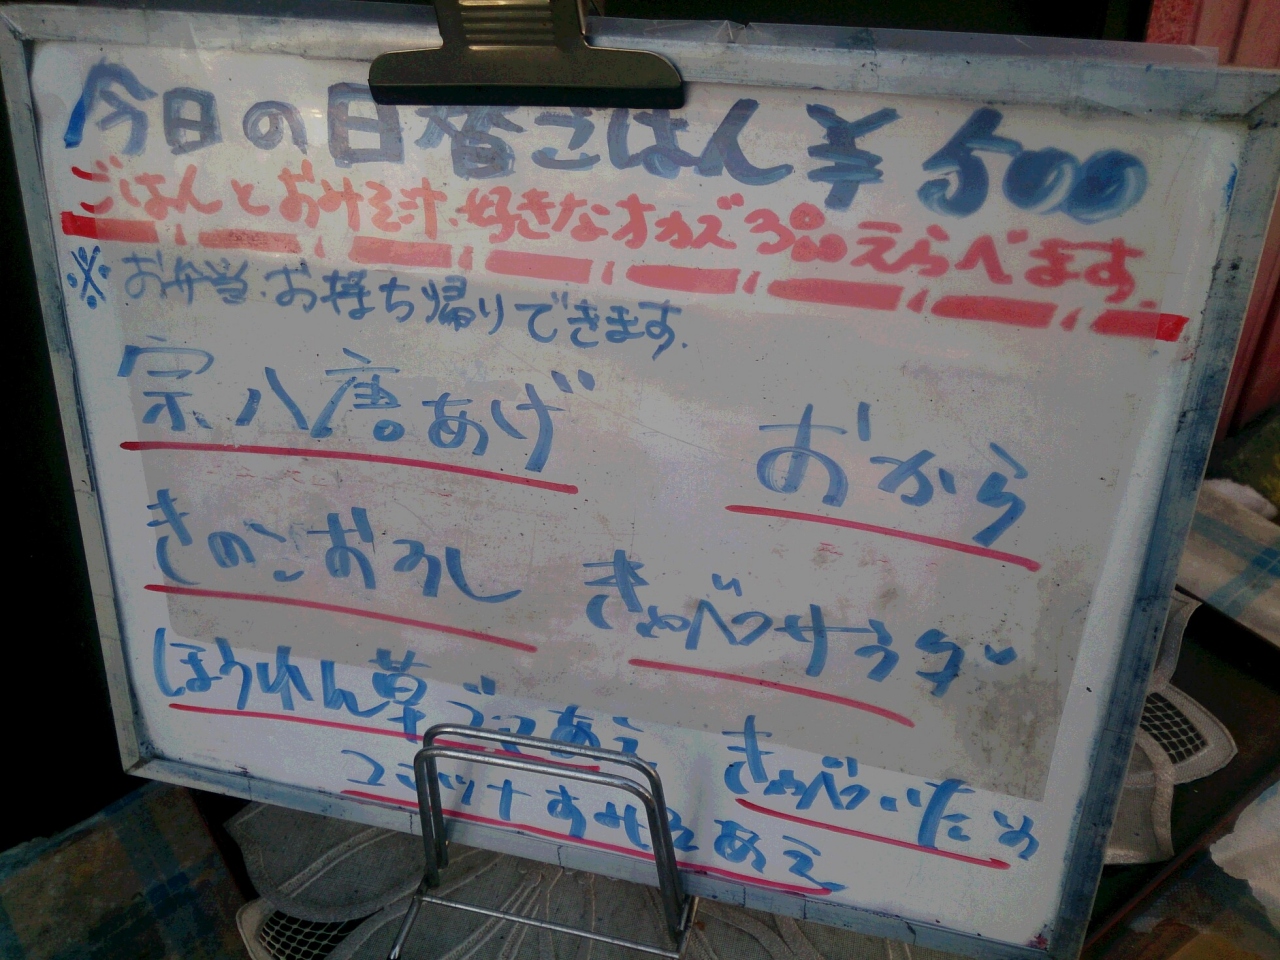 今日の日替ごはん ¥500
ごはんとおみそ汁、好きなオカズ3品えらべます。
※お弁当・お持ち帰りできます。
宗八唐あげ
おから
きのこおろし
きゃべつサラダ
ほうれん草ごまあえ
きゃべついため
コマツナすみそあえ